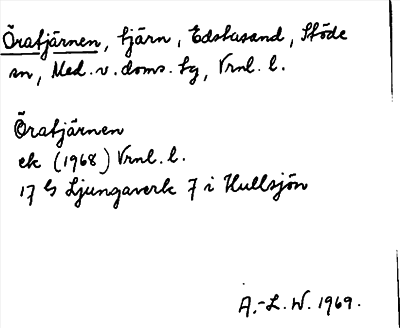 Öratjärnen, tjärn, Edstasand, Stöde
sn, Med. v. doms. tg, Vrnl. l.
Öratjärnen
ek (1968) Vrnl. l.
17 G Ljungaverk 7 i Hullsjön
A.-L. W. 1969.